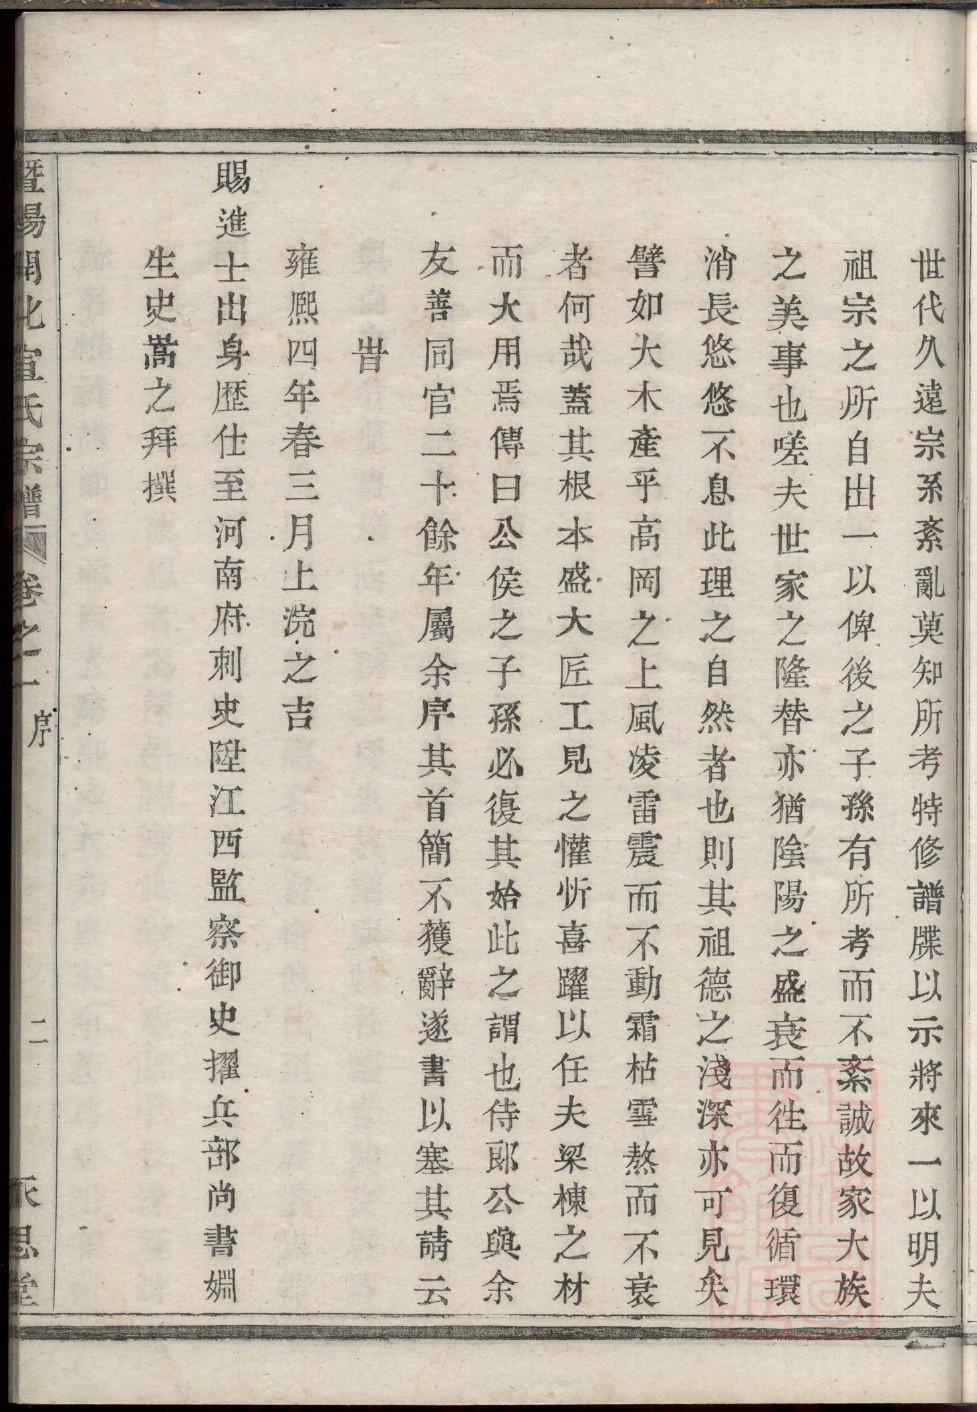 世代久遠宗系紊亂莫知所考特修譜牒以示將來一以明夫
祖宗之所自出一以俾後之子孫有所考而不紊誠故家大族
之美事也嗟夫世家之隆替亦猶陰陽之盛衰而徃而復循環
消長悠悠不息此理之自然者也則其祖德之淺深亦可見矣
譬如大木產乎高岡之上風凌雷震而不動霜枯雪熬而不衰
者何哉蓋其根本盛大匠工見之懽忻喜躍以任夫梁棟之材
而大用焉傳曰公侯之子孫必復其始此之謂也侍郎公與余
友善同官二十餘年屬余序其首簡不獲辭遂書以塞其請云
旹
雍熙四年春三月上浣之吉
賜進士出身歷仕至河南府刺史陞江西監察御史擢兵部尚書婣
生史蒿之拜撰
暨陽開化宣氏宗譜 卷之一 序 二 永思堂